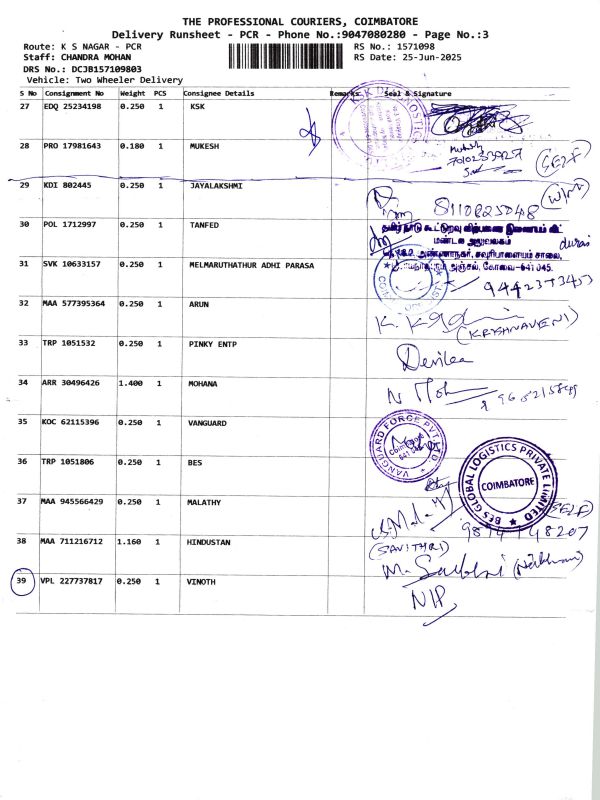 THE PROFESSIONAL COURIERS, COIMBATORE
Delivery Runsheet - PCR - Phone No.:9047080280 - Page No.:3
Route: K S NAGAR - PCR RS No.: 1571098
Staff: CHANDRA MOHAN RS Date: 25-Jun-2025
DRS No.: DCJB157109803
Vehicle: Two Wheeler Delivery
S No Consignment No Weight PCS Consignee Details Remarks Seal & Signature
27 EDQ 25234198 0.250 1 KSK
K DIAGNOSTICS
28 PRO 17981643 0.180 1 MUKESH
Mukesh
(SELF)
29 KDI 802445 0.250 1 JAYALAKSHMI
8110825048
(W/M)
30 POL 1712997 0.250 1 TANFED
தமிழ்நாடு கூட்டுறவு விற்பனை இணையம் லிட்
மண்டல அலுவலகம்
அண்ணாநகர், சவுரிபாளையம் சாலை,
அஞ்சல், கோவை-641 045.
durai
31 SVK 10633157 0.250 1 MELMARUTHATHUR ADHI PARASA
9442373453
32 MAA 577395364 0.250 1 ARUN
(KRISHNAVENI)
33 TRP 1051532 0.250 1 PINKY ENTP
34 ARR 30496426 1.400 1 MOHANA
N Moh
35 KOC 62115396 0.250 1 VANGUARD
VANGUARD FORCE PVT. LTD
Coimbatore
36 TRP 1051806 0.250 1 BES
BES GLOBAL LOGISTICS PRIVATE LIMITED
COIMBATORE
37 MAA 945566429 0.250 1 MALATHY
(SELF)
38 MAA 711216712 1.160 1 HINDUSTAN
(SAVITHRI)
39 VPL 227737817 0.250 1 VINOTH
NIP